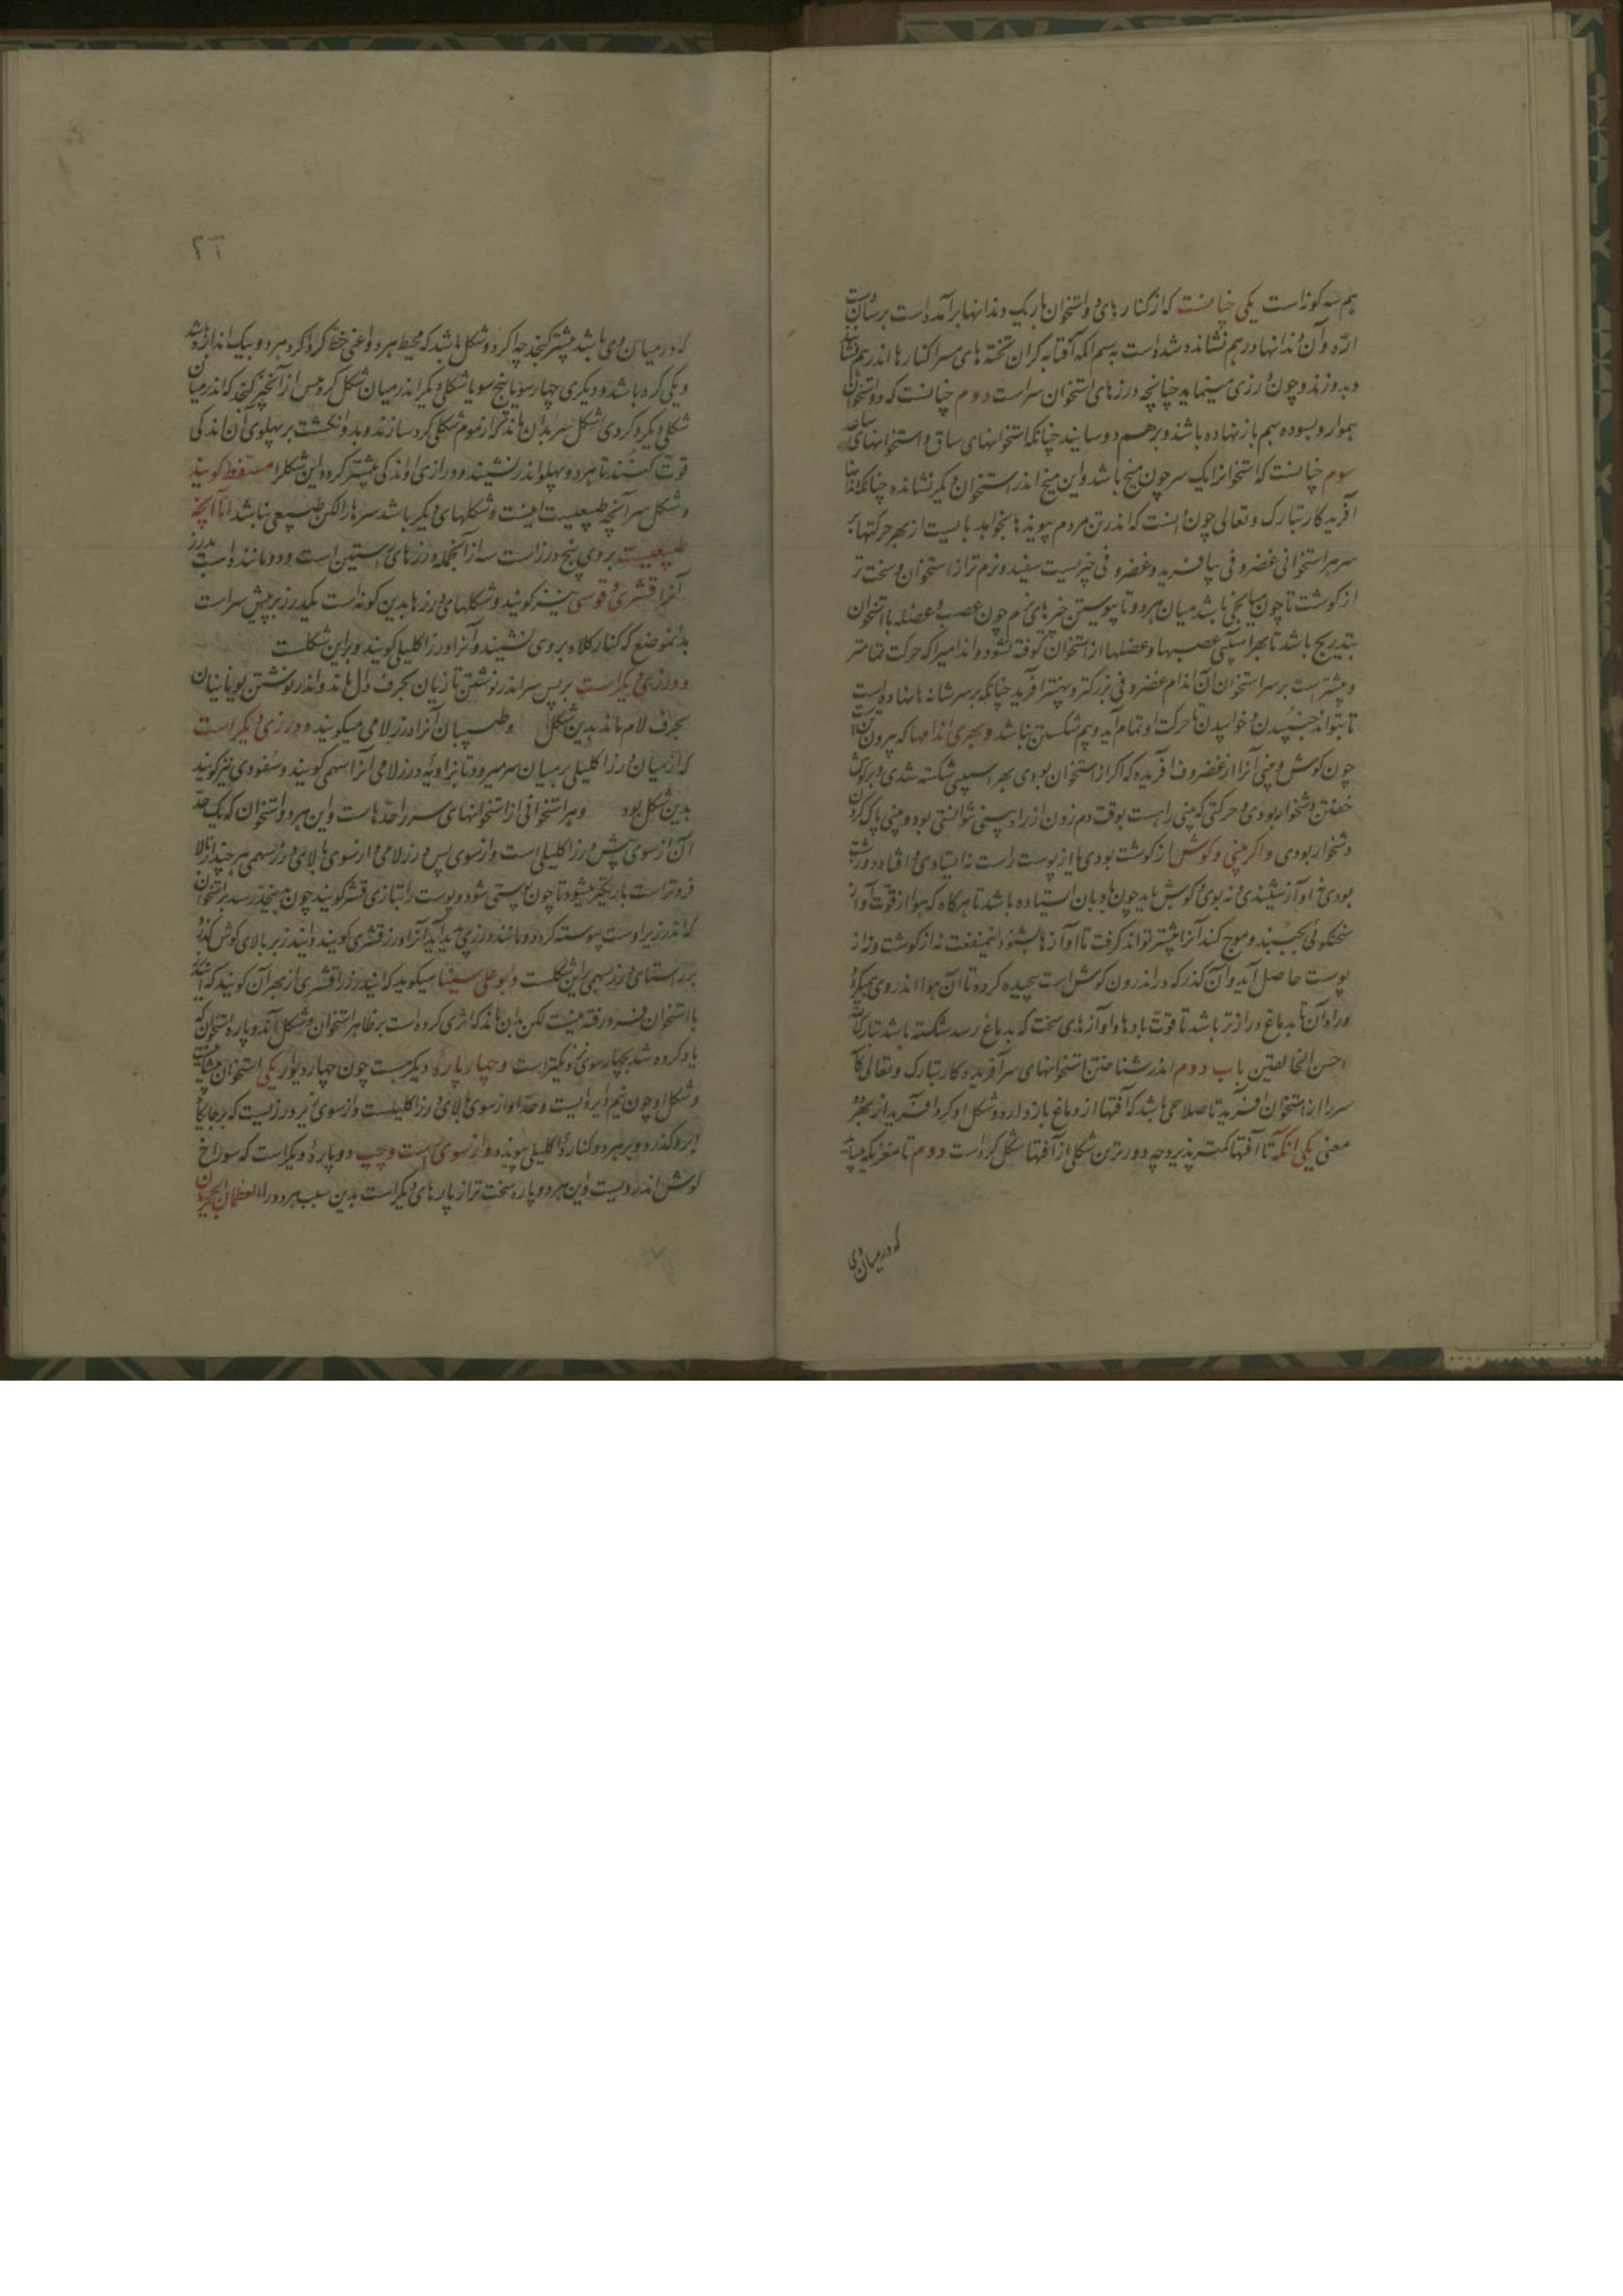 هم سه کونه است یکی چنانست که از کنارهای دو استخوان باریک دندانها برآمده است برسان
ارّه و آن دندانها درهم نشانده شده است برسم انکه آفتابه کران تخته های مس را کنارها اندر هم نشانند
و بدوزند و چون درزی مینماید چنانچه درزهای استخوان سراست دوم چنانست که دو استخوان
هموار و بسوده بهم باز نهاده باشند و برهم دوسانیده چنانکه استخوانهای ساق و استخوانهای ساعد
سوم چنانست که استخوانرا یک سر چون میخ باشد و این میخ اندر استخوان دیکر نشانده چنانکه دندانها
آفریدکار تبارک و تعالی چون دانست که اندر تن مردم پیوندها بخواهد بایست از بهر حرکتها بر
سر هر استخوانی غضروفی بیافرید و غضروفی چیزیست سفید و نرم تر از استخوان و سخت تر
از کوشت تا چون میانجی باشد میان هر دو تا پیوستن چیزهای نرم چون عصب و عضله با استخوان
بتدریج باشد تا بهر آسیبی عصبها و عضلها از استخوان کوفته نشود و اندامیرا که حرکت تمامتر
و بیشتر است بر سر استخوان آن اندام غضروفی بزرکتر و پهنتر آفرید چنانکه بر سر شانه ها نهاده است
تا بتواند جنبیدن و خوابیدن تا حرکت او تمام آید و بیم شکستن نباشد و بهری اندامها که بیرون است
چون کوش و بینی آنرا از غضروف آفریده که اکر از استخوان بودی بهر آسیبی شکسته شدی و بر کوش
خفتن دشخوار بودی و حرکتی که بینی راست بوقت دم زدن از راه بینی نتوانستی بود و بینی پاک کردن
دشخوار بودی و اکر بینی و کوش از کوشت بودی یا از پوست راست نه ایستادی و افتاده و زشت
بودی و نه آواز شنیدی و نه بوی و کوش باید چون بادبان ایستاده باشد تا هرکاه که هوا از قوّت آواز
سخنکوئی بجنبند و موج کند آنرا بیشتر تواند کرفت تا آوازها بشنود اینمنفعت نه از کوشت و نه از
پوست حاصل آید و آن کذر که در اندرون کوش است پیچیده کرده تا آن هوا اندر وی میکردد
و راه آن تا بدماغ درازتر باشد تا قوّت بادها و آوازهای سخت که بدماغ رسد شکسته باشد تبارک الله
احسن الخالقین باب دوم اندر شناختن استخوانهای سر آفریدکار تبارک و تعالی
سر را از استخوان آفرید تا صلاحی باشد که آفتها از دماغ باز دارد و شکل او کرد آفرید از بهر دو
معنی یکی آنکه تا آفتها کمتر پذیرد چه دورترین شکلی از آفتها شکل کرد است دوم تا مغزیکه میباید
که در میان وی
۲۲
که در میان وی باشد بیشتر کنجد چه اکر دو شکل باشد که محیط هر دو اعنی خط کرداکرد هر دو بیک اندازه باشد
و یکی کرد باشد و دیکری چهار سو یا پنج سو یا شکلی دیکر اندر میان شکل کرد بیش از آنچیز کنجد که اندر میان
شکلی دیکر و کردی شکل سر بدان ماند که از موم شکلی کرد سازند و بدو انکشت بر پهلوی آن اندکی
قوّت کنند تا هر دو پهلو اندر نشیند و درازی او اندکی بیشتر کردد این شکلرا مستفط کویند
و شکل سر آنچه طبیعیست اینست و شکلهای دیکر باشد سرها را لکن طبیعی نباشد امّا آنچه
طبیعیست بروی پنج درز است سه از آنجمله درزهای راستین است و دو ماننده است بدرز
آنرا قشری و قوسی نیز کویند و شکلهای درزها بدین کونه است یکدرز بر پیش سر است
بدانموضع که کنار کلاه بروی نشیند و آنرا درز اکلیلی کویند و براین شکلست
و درزی دیکر است بر پس سر اندر نوشتن تازیان بحرف دال ماند و اندر نوشتن یونانیان
بحرف لام ماند بدین شکل و طبیبان آنرا درز لامی میکویند و درزی دیکر است
که از میان درز اکلیلی بر میان سر میرود تا بزاویه درز لامی آنرا سهمی کویند و سفودی نیز کویند
بدین شکل بود و هر استخوانی از استخوانهای سر را حدّهاست و این هر دو استخوان که یک حدّ
آن از سوی پیش درز اکلیلی است و از سوی پس درز لامی و از سوی بالای درز سهمی هر چند از بالا
فروتر است باریکتر میشود تا چون پوستی شود و پوست را بتازی قشر کویند چون بدینجا رسد بر استخوان
که اندر زیر اوست پیوسته کردد و مانند درزی پدید آید آنرا درز قشری کویند و این درز بر بالای کوش کذرد
بر راستای درز سهمی براین شکلست و بوعلی سینا میکوید که این درز را قشری از بهر آن کویند که این درز
با استخوان فرو رفته نیست لکن بدان ماند که اثری کرده است بر ظاهر استخوان و شکل آن دو پاره استخوان که
یاد کرده شد بچهار سوی نزدیکتر است و چهار پاره دیکر هست چون چهار دیوار یکی استخوان پیشانیست
و شکل او چون نیم دایره ایست و حدّ او از سوی بالای درز اکلیلیست و از سوی زیر درزیست که بر جایکاه
ابرو کذرد و بر هر دو کناره اکلیلی پیوندد و از سوی راست و چپ دو پاره دیکر است که سوراخ
کوش اندر ویست و این هر دو پاره سخت تر از پارهای دیکر است بدین سبب هر دو را العظمان الحجریان